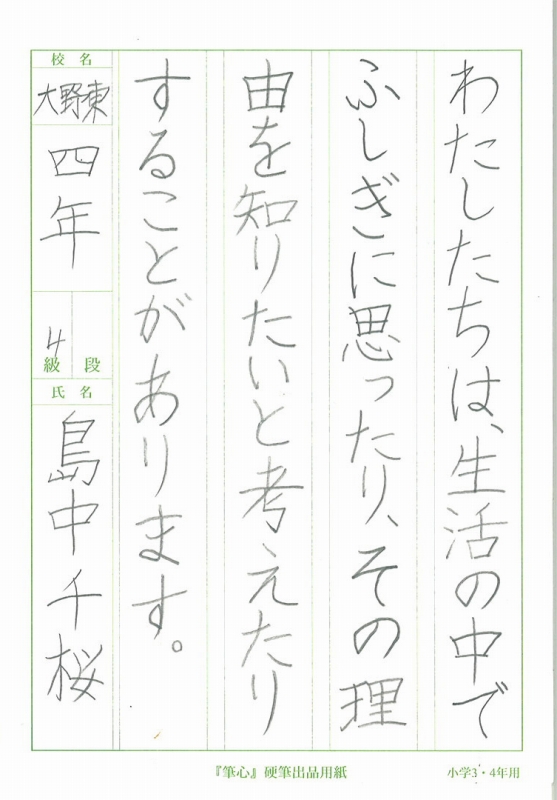 わたしたちは、生活の中で
ふしぎに思ったり、その理
由を知りたいと考えたり
することがあります。
校名
大野東
四年
4
級 段
氏名
島中千桜
『筆心』硬筆出品用紙
小学3・4年用